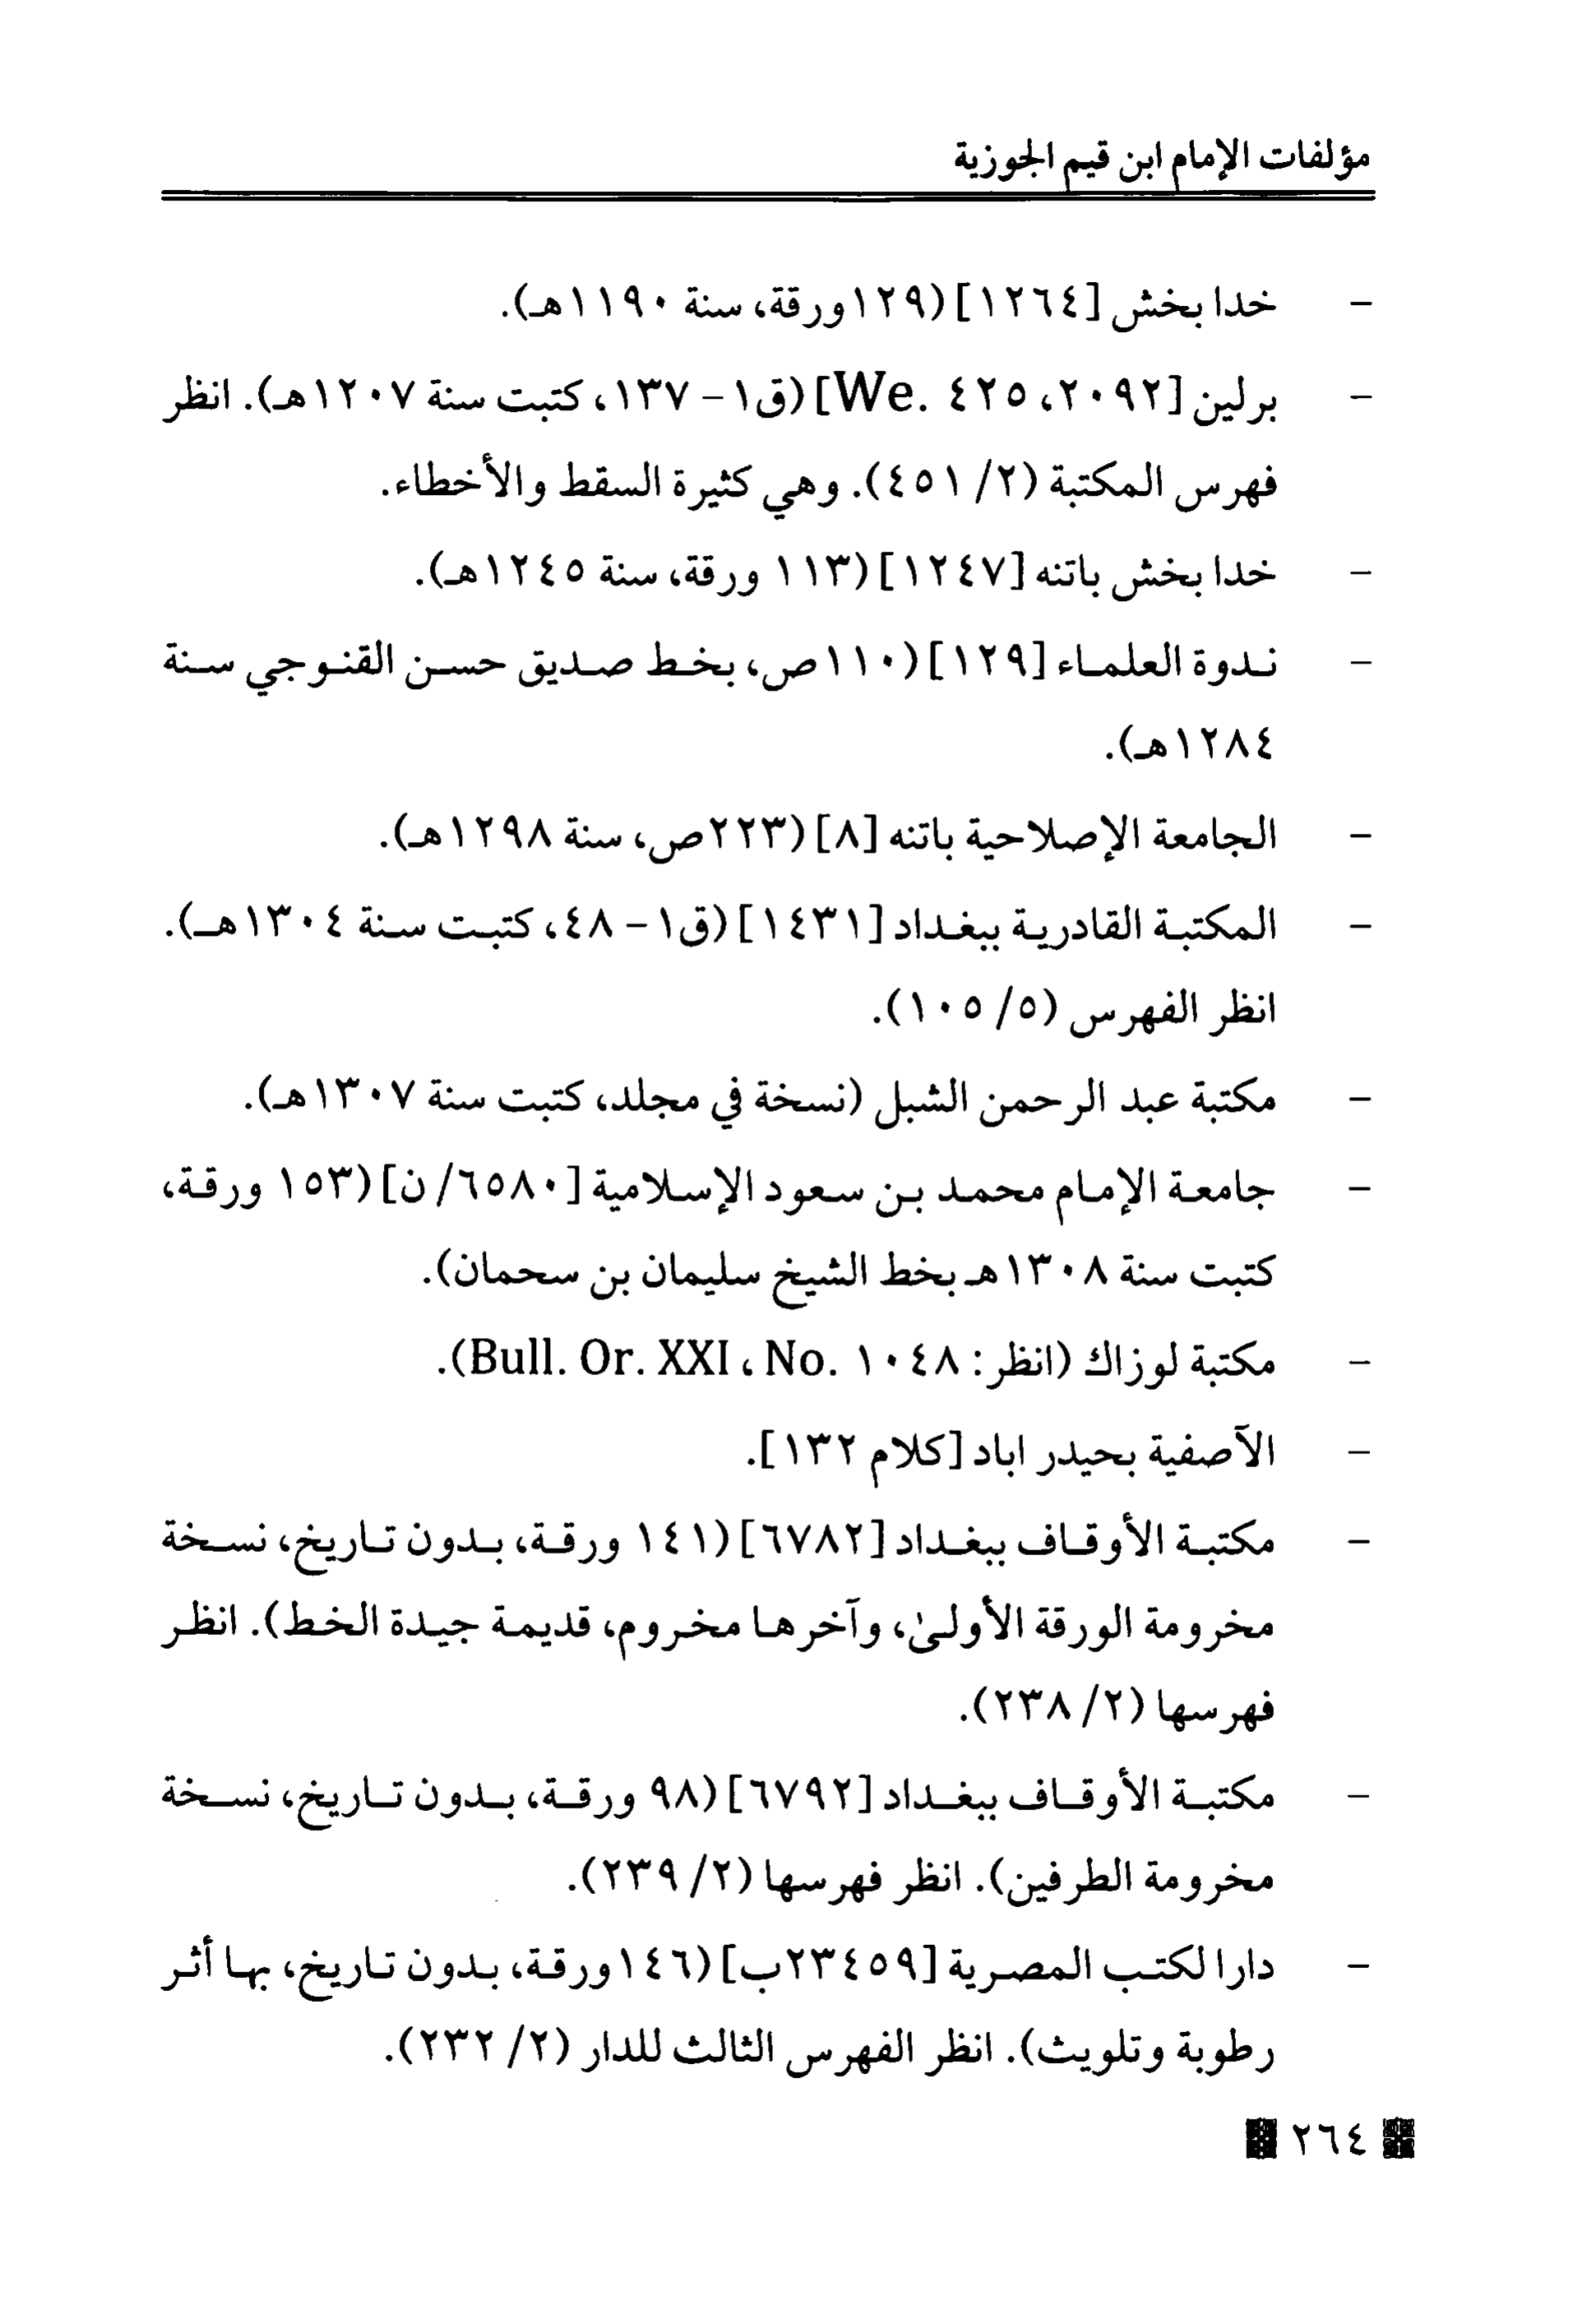 مؤلفات الإمام ابن قيم الجوزية
- خدا بخش [١٢٦٤] (١٢٩ورقة، سنة ١١٩٠هـ).
- برلين [٢٠٩٢، We. ٤٢٥] (ق١- ١٣٧، كتبت سنة ١٢٠٧هـ). انظر
فهرس المكتبة (٢/ ٤٥١). وهي كثيرة السقط والأخطاء.
- خدا بخش باتنه [١٢٤٧] (١١٣ ورقة، سنة ١٢٤٥هـ).
- ندوة العلماء [١٢٩] (١١٠ص، بخط صديق حسن القنوجي سنة
١٢٨٤هـ).
- الجامعة الإصلاحية باتنه [٨] (٢٢٣ص، سنة ١٢٩٨هـ).
- المكتبة القادرية ببغداد [١٤٣١] (ق١- ٤٨، كتبت سنة ١٣٠٤هـ).
انظر الفهرس (٥/ ١٠٥).
- مكتبة عبد الرحمن الشبل (نسخة في مجلد، كتبت سنة ١٣٠٧هـ).
- جامعة الإمام محمد بن سعود الإسلامية [٦٥٨٠/ ن] (١٥٣ ورقة،
كتبت سنة ١٣٠٨هـ بخط الشيخ سليمان بن سحمان).
- مكتبة لوزاك (انظر: Bull. Or. XXI، No. ١٠٤٨).
- الآصفية بحيدر اباد [كلام ١٣٢].
- مكتبة الأوقاف ببغداد [٦٧٨٢] (١٤١ ورقة، بدون تاريخ، نسخة
مخرومة الورقة الأولىٰ، وآخرها مخروم، قديمة جيدة الخط). انظر
فهرسها (٢/ ٢٣٨).
- مكتبة الأوقاف ببغداد [٦٧٩٢] (٩٨ ورقة، بدون تاريخ، نسخة
مخرومة الطرفين). انظر فهرسها (٢/ ٢٣٩).
- دارا لكتب المصرية [٢٣٤٥٩ب] (١٤٦ورقة، بدون تاريخ، بها أثر
رطوبة وتلويث). انظر الفهرس الثالث للدار (٢/ ٢٣٢).
٢٦٤